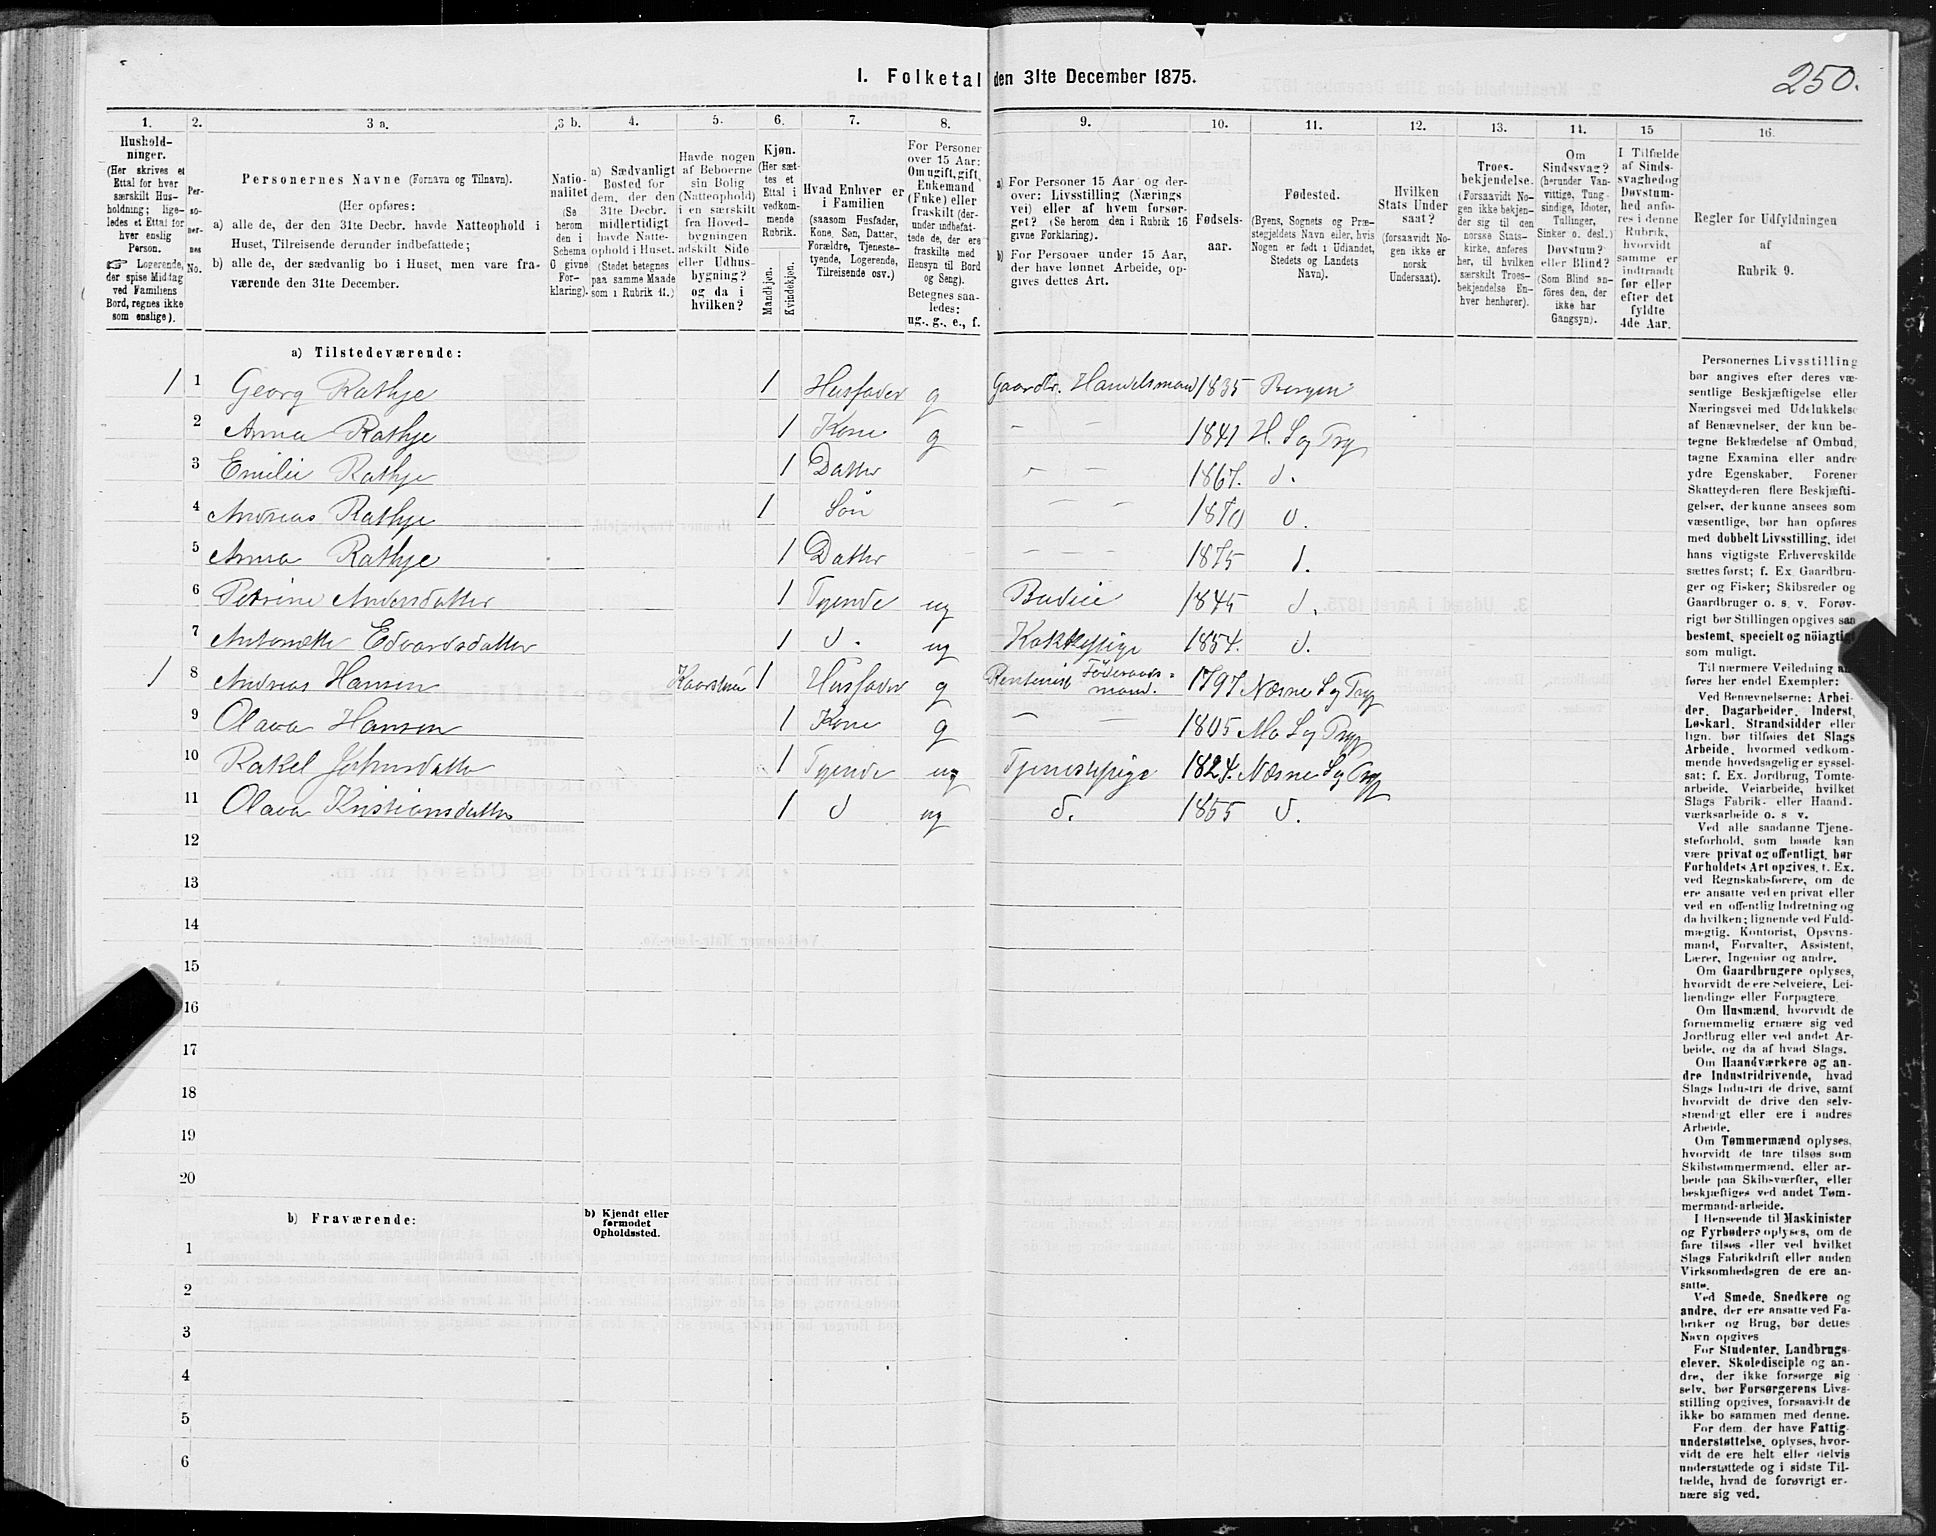 250.
I. Folketal den 31te December 1875.
1. 2. 3 a. 3 b. 4. 5. 6. 7. 8. 9. 10. 11. 12. 13. 14. 15 16.
Hushold-
ninger.
(Her skrives et
Ettal for hver
særskilt Hus-
holdning; lige-
ledes et Ettal for
hver enslig
Person.
☞ Logerende,
der spise Middag
ved Familiens
Bord, regnes ikke
som enslige).
Per-
so-
ner-
nes
No.
Personernes Navne (Fornavn og Tilnavn).
(Her opføres:
a) alle de, der den 31te Decbr. havde Natteophold i
Huset, Tilreisende derunder indbefattede;
b) alle de, der sædvanlig bo i Huset, men vare fra-
værende den 31te December.
Natio-
nalitet
(Se
herom
den i
Schema
G givne
For-
klaring).
a) Sædvanligt
Bosted for
dem, der den
31te Decbr.
midlertidigt
havde Natte-
ophold i Huset.
(Stedet betegnes
paa samme Maade
som i Rubrik 11.)
Havde nogen
af Beboerne
sin Bolig
(Natteophold)
i en særskilt
fra Hoved-
bygningen
adskilt Side-
eller Udhus-
bygning?
og da i
hvilken?
Kjøn.
(Her sæt-
tes et
Ettal i
vedkom-
mende
Rubrik.
Mandkjøn.
Kvindekjøn.
Hvad Enhver er
i Familien
(saasom Husfader,
Kone, Søn, Datter,
Forældre, Tjeneste-
tyende, Logerende,
Tilreisende osv.)
For Personer
over 15 Aar:
Om ugift, gift,
Enkemand
(Enke) eller
fraskilt (der-
under indbefat-
tede de, der ere
fraskilte med
Hensyn til Bord
og Seng).
Betegnes saa-
ledes:
ug., g., e., f.
a) For Personer 15 Aar og der-
over: Livsstilling (Nærings
vei) eller af hvem forsør-
get? (Se herom den i Rubrik 16
givne Forklaring).
b) For Personer under 15 Aar,
der have lønnet Arbeide, op-
gives dettes Art.
Fødsels-
aar.
Fødested.
(Byens, Sognets og Præ-
stegjeldets Navn eller, hvis
Nogen er født i Udlandet,
Stedets og Landets
Navn).
Hvilken
Stats Under
saat?
(forsaavidt No-
gen ikke er
norsk
Undersaat).
Troes-
bekjendelse.
(Forsaavidt No-
gen ikke bekjen-
der sig til den
norske Stats-
kirke, anføres
her, til hvilken
særskilt Troes-
bekjendelse En-
hver henhører).
Om
Sindssvag?
(herunder Van-
vittige, Tung-
sindige, Idioter,
Tullinger,
Sinker o. desl.)
Døvstum?
eller Blind?
(Som Blind an-
føres den, der
ikke har
Gangsyn).
I Tilfælde
af Sinds-
svaghed og
Døvstum-
hed anfø-
res i denne
Rubrik,
hvorvidt
samme er
indtraadt
før eller
efter det
fyldte
4de Aar.
Regler for Udfyldningen
af
Rubrik 9.
a) Tilstedeværende:
1 1 Georg Rathje 1 Husfader g Gaardbr. Handelsmand 1835 Bergen
2 Anna Rathje 1 Kone g - - 1841 H. S og Prg
3 Emilie Rathje 1 Datter - - 1867. d.
4 Andreas Rathje 1 Søn - - 1870 d.
5 Anna Rathje 1 Datter - - - 1875 d.
6 Petrine Andersdatter 1 Tyende ug Budeie 1845 d.
7 Antonette Edvardsdatter 1 d. ug Kokkepige 1854. d.
1 8 Andreas Hansen 1 Husfader g Rentenist Föderaads-
mand. 1797 Næsne S og Prg
9 Olava Hansen 1 Kone g - - 1805 Mo S og Prg
10 Rakel Johnsdatter 1 Tyende ug Tjenestepige 1824. Næsne S og Prg
11 Olava Kristiansdatter 1 d ug d. 1855 d.
12
13
14
15
16
17
18
19
20
b) Fraværende:
b) Kjendt eller
formodet
Opholdssted.
1
2
3
4
5
6
Personernes Livsstilling
bør angives efter deres væ-
sentlige Beskjæftigelse eller
Næringsvei med Udelukkelse
af Benævnelser, der kun be-
tegne Beklædelse af Ombud,
tagne Examina eller andre
ydre Egenskaber. Forener
Skatteyderen flere Beskjæfti-
gelser, der kunne ansees som
væsentlige, bør han opføres
med dobbelt Livsstilling, idet
hans vigtigste Erhvervskilde
sættes først; f. Ex. Gaardbru-
ger og Fisker; Skibsreder og
Gaardbruger o. s. v. Forøv-
rigt bør Stillingen opgives saa
bestemt, specielt og nöiagtigt
som muligt.
Til nærmere Veiledning an-
føres her endel Exempler:
Ved Benævnelserne: Arbei-
der, Dagarbeider, Inderst,
Løskarl, Strandsidder eller
lign. bør tilføies det Slags
Arbeide, hvormed vedkom-
mende hovedsagelig er syssel-
sat; f. Ex. Jordbrug, Tomte-
arbeide, Veiarbeide, hvilket
Slags Fabrik- eller Haand-
værksarbeide o. s. v.
Ved alle saadanne Tjene-
steforhold, som baade kan
være privat og offentligt, bør
Forholdets Art opgives, t. Ex.
ved Regnskabsførere, om de
ere ansatte ved en privat eller
ved en offentlig Indretning og
da hvilken; lignende ved Fuld-
mægtig, Kontorist, Opsyns-
mand, Forvalter, Assistent,
Lærer, Ingeniør og andre.
Om Gaardbrugere oplyses,
hvorvidt de ere Selveiere, Lei-
lændinge eller Forpagtere.
Om Husmænd, hvorvidt de
fornemmelig ernære sig ved
Jordbrug eller ved andet Ar-
beide, og da af hvad Slags.
Om Haandværkere og an-
dre Industridrivende, hvad
Slags Industri de drive, samt
hvorvidt de drive den selv-
stændigt eller ere i andres
Arbeide.
Om Tømmermænd oplyses,
hvorvidt de fare tilsøs som
Skibstømmermænd, eller ar-
beide paa Skibsværfter, eller
beskjæftiges ved andet Tøm-
mermand-arbeide.
I Henseende til Maskinister
og Fyrbødere oplyses, om de
fare tilsøs eller ved hvilket
Slags Fabrikdrift eller anden
Virksomhedsgren de ere an-
satte.
Ved Smede, Snedkere og
andre, der ere ansatte ved Fa-
briker og Brug, bør dettes
Navn opgives
For Studenter, Landbrugs-
elever, Skoledisciple og an-
dre, der ikke forsørge sig
selv, bør Forsørgerens Livs-
stilling opgives, forsaavidt de
ikke bo sammen med denne.
For dem, der have Fattig-
understøttelse, oplyses, hvor-
vidt de ere helt eller delvis
understøttede og i sidste Til-
fælde, hvad de forøvrigt er-
nære sig ved.